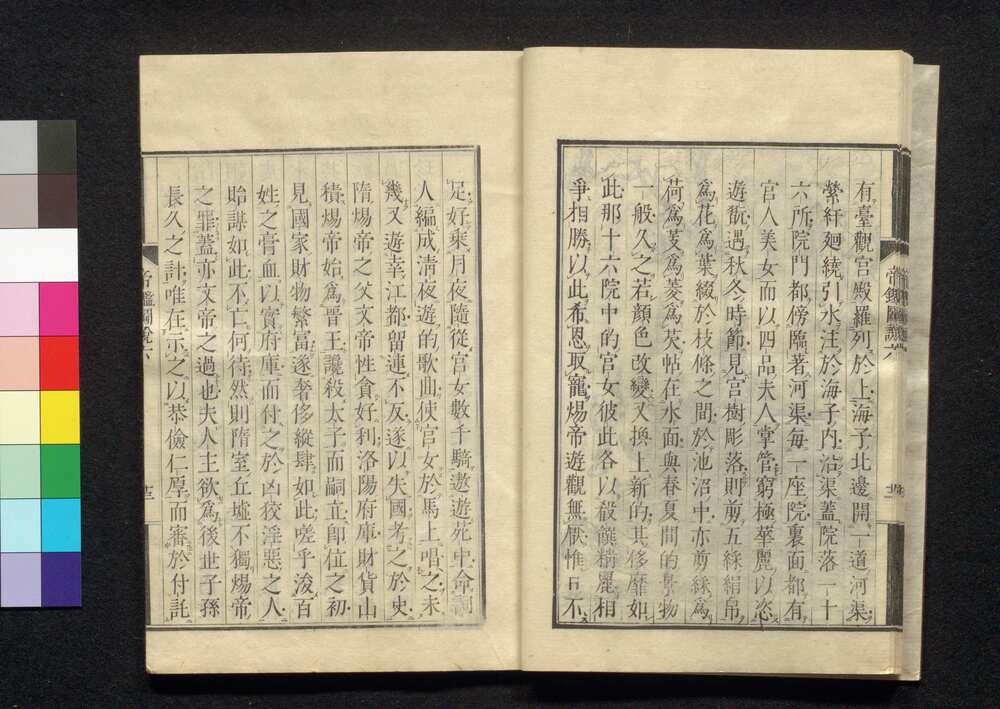 有臺觀宮殿羅列於上海子北邊開一道河渠
縈紆廻繞引水注於海子内沿渠蓋院落一十
六所院門都傍臨著河渠每一座院裏面都有
宮人美女而以四品夫人掌管窮極華麗以恣
遊翫遇秋冬時節見宮樹彫落則剪五綵絹帛
爲花爲葉綴於枝條之間於池沼中亦剪綵爲
荷爲芰爲菱爲芡帖在水面與春夏間的景物
一般久之若顏色改變又換上新的其侈靡如
此那十六院中的宮女彼此各以殽饌精麗相
爭相勝以此希恩取寵煬帝遊觀無厭惟日不
帝鑑圖說六
足好乘月夜隨從宮女數千騎遨遊苑中命詞
人編成清夜遊的歌曲使宮女於馬上唱之未
幾又遊幸江都留連不反遂以失國考之於史
隋煬帝之父文帝性貪好利洛陽府庫財貨山
積煬帝始爲晋王讒殺太子而嗣立即位之初
見國家財物繁富遂奢侈縱肆如此嗟乎浚百
姓之膏血以實府庫而付之於凶狡淫惡之人
貽謀如此不亡何待然則隋室丘墟不獨煬帝
之罪蓋亦文帝之過也夫人主欲爲後世子孫
長久之計唯在示之以恭儉仁厚而審於付託
帝鑑圖說六
十三